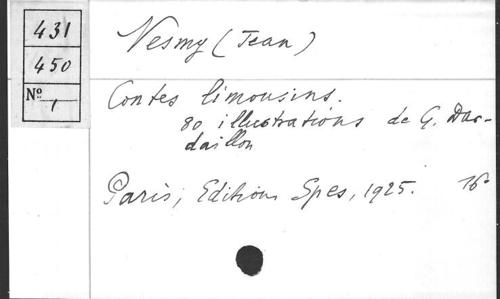 431
450
Nº 1
Nesmy (Jean)
Contes limousins.
80 illustrations de G. Dar-
daillon
Paris, Editions Spes, 1925. 16°